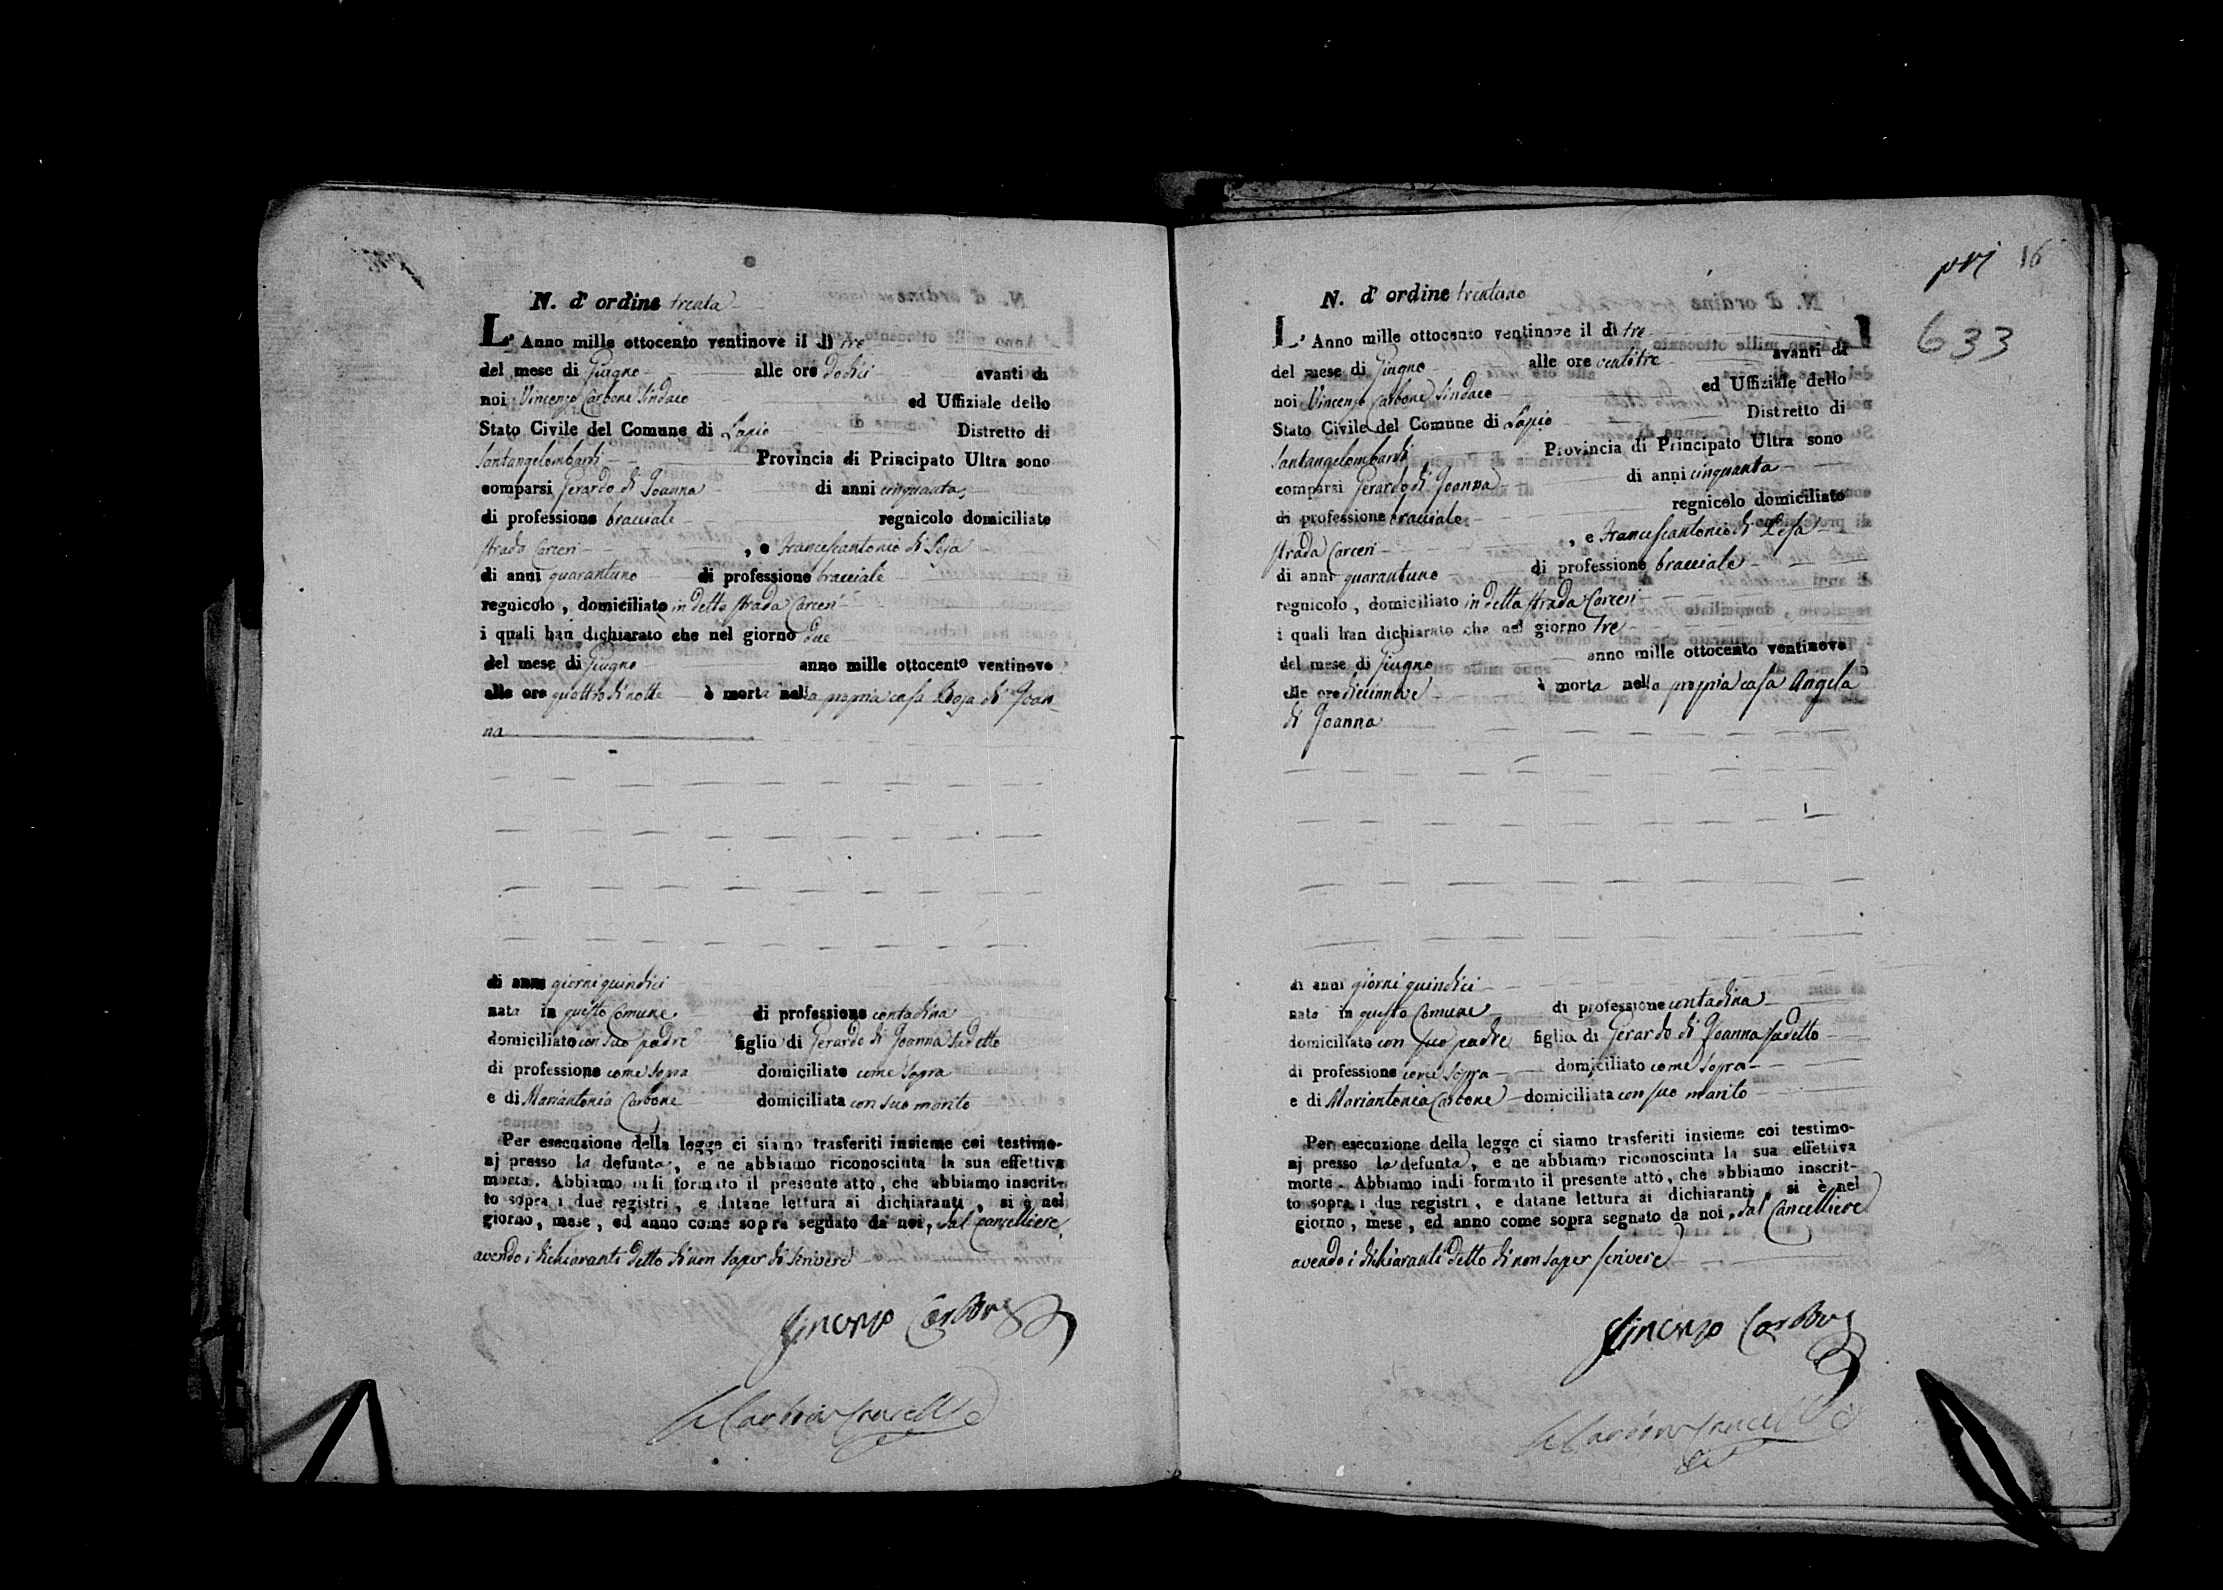 N. d' ordine trenta
L' Anno mille ottocento ventinove il dì tre
del mese di Giugno alle ore dodici avanti di
noi Vincenzo Carbone Sindaco ed Uffiziale dello
Stato Civile del Comune di Lapio Distretto di
Santangelombardi Provincia di Principato Ultra sono
comparsi Gerardo di Joanna di anni cinquanta
di professione bracciale regnicolo domiciliato
strada Carceri , e Francescantonio di Lesa
di anni quarantuno di professione bracciale
regnicolo , domiciliato in detta strada Carceri
i quali han dichiarato che nel giorno due
del mese di Giugno anno mille ottocento ventinove
alle ore quattro di notte è morta nella propria casa Rosa di Joan
na
di anni giorni quindici
nata in questo Comune di professione contadina
domiciliato con suo padre figlia di Gerardo di Joanna sudetto
di professione come sopra domiciliato come sopra
e di Mariantonia Carbone domiciliata con suo marito
Per esecuzione della legge ci siamo trasferiti insieme coi testimo-
nj presso la defunta, e ne abbiamo riconosciuta la sua effettiva
morte. Abbiamo indi formato il presente atto, che abbiamo inscrit-
to sopra i due registri, e datane lettura ai dichiaranti, si è nel
giorno, mese, ed anno come sopra segnato da noi, dal Cancelliere,
avendo i dichiaranti detto di non saper di scrivere
Vincenzo Carbone
Carbone Cancell
xvj 16
633
N. d' ordine trentuno
L' Anno mille ottocento ventinove il dì tre
del mese di Giugno alle ore ventitre avanti di
noi Vincenzo Carbone Sindaco ed Uffiziale dello
Stato Civile del Comune di Lapio Distretto di
Santangelombardi Provincia di Principato Ultra sono
comparsi Gerardo di Joanna di anni cinquanta
di professione bracciale regnicolo domiciliato
strada Carceri , e Francescantonio di Lesa
di anni quarantuno di professione bracciale
regnicolo , domiciliato in detta strada Carceri
i quali han dichiarato che nel giorno tre
del mese di Giugno anno mille ottocento ventinove
alle ore diecinnove è morta nella propria casa Angela
di Joanna
di anni giorni quindici
nata in questo Comune di professione contadina
domiciliato con suo padre figlia di Gerardo di Joanna sudetto
di professione come sopra domiciliato come sopra
e di Mariantonia Carbone domiciliata con suo marito
Per esecuzione della legge ci siamo trasferiti insieme coi testimo-
nj presso la defunta, e ne abbiamo riconosciuta la sua effettiva
morte. Abbiamo indi formato il presente atto, che abbiamo inscrit-
to sopra i due registri, e datane lettura ai dichiaranti, si è nel
giorno, mese, ed anno come sopra segnato da noi, dal Cancelliere
avendo i dichiaranti detto di non saper scrivere
Vincenzo Carbone
Carbone Cancell